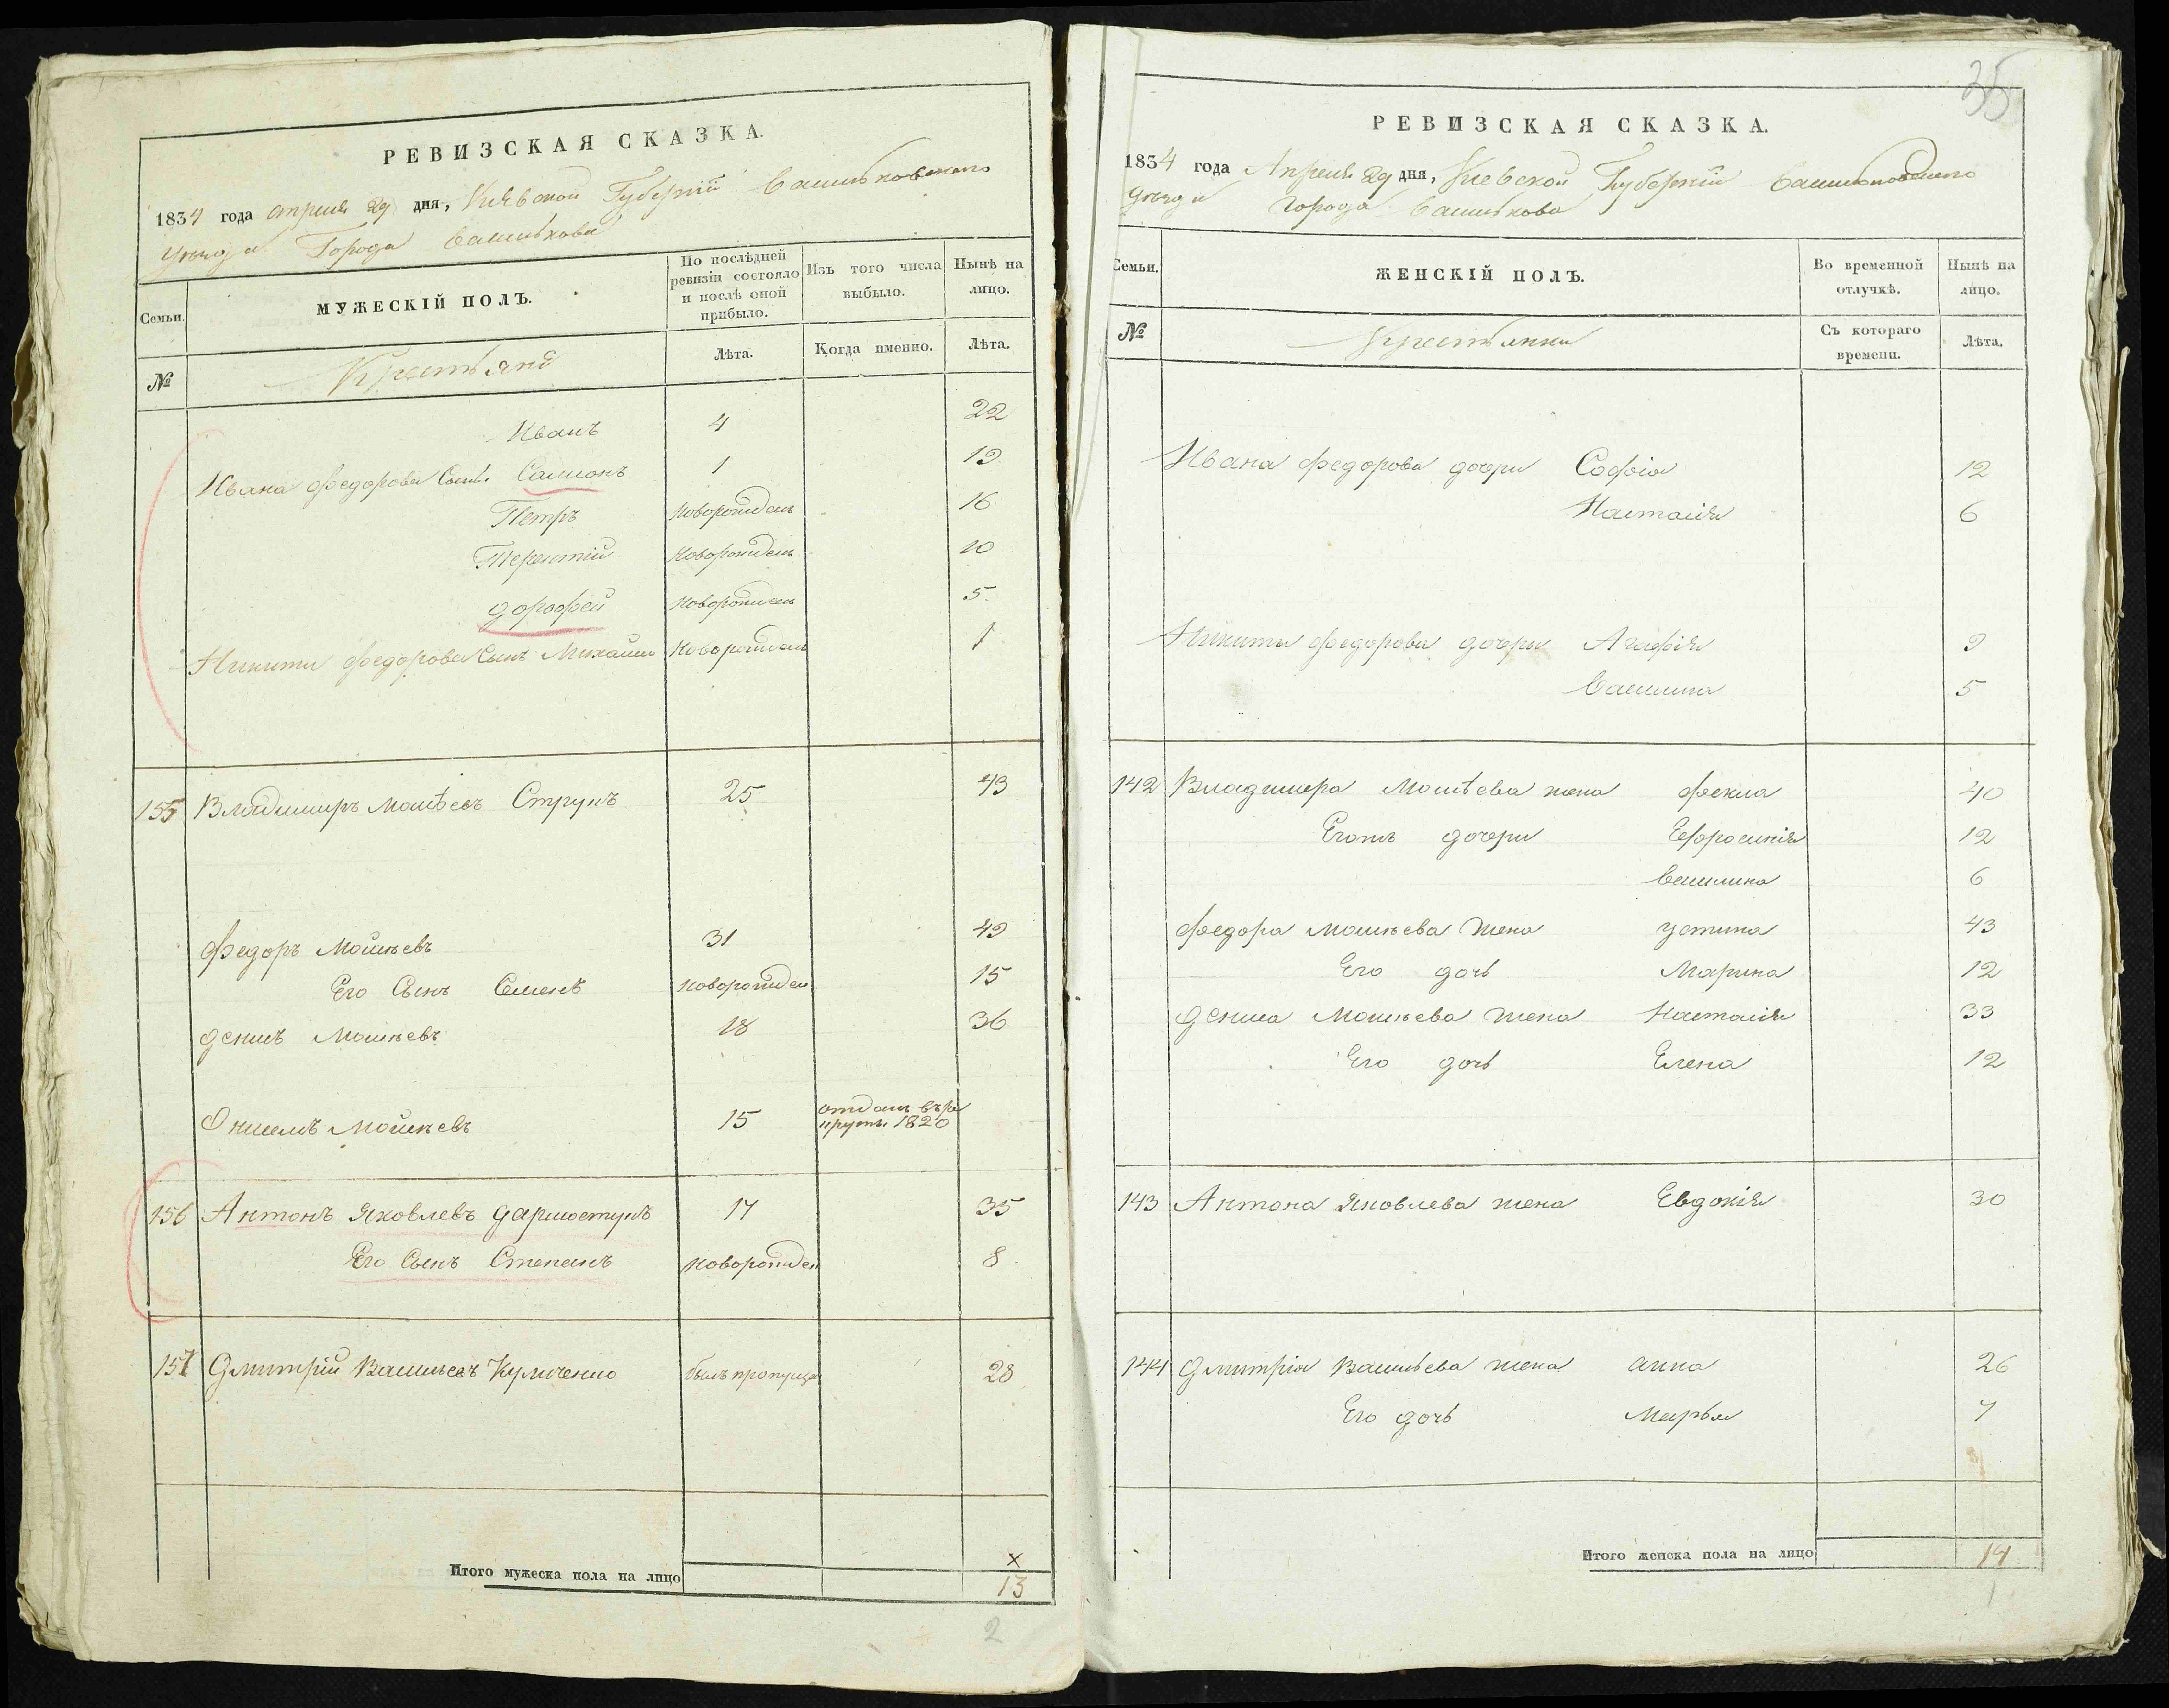 РЕВИЗСКАЯ СКАЗКА.
1834 года апреля 29 дня, Киевской Губерніи Василковского
уезда Города Василкова
Семьи. МУЖЕСКІЙ ПОЛЪ. По послѣдней ревизіи состояло и послѣ оной прибыло. Изъ того числа выбыло. Нынѣ на лицо.
№ Крестьяне Лѣта. Когда именно. Лѣта.
Иванъ 4 22
Ивана Федорова Сынъ Самионъ 1 19
Петръ новорожден 16
Терентий новорожден 10
дорофей новорожден 5
Никиты Федорова Сынъ Михаилъ новорожден 1
155 Владимиръ Мойсѣевъ Струкъ 25 43
Федоръ Мойсѣевъ 31 49
Его Сынъ Семенъ новорожден 15
денисъ Мойсѣевъ 18 36
Онисимъ Мойсѣевъ 15 отданъ въ ре
круты 1820
156 Антонъ Яковлевъ дармостукъ 17 35
Его Сынъ Степанъ новорожден 8
157 Дмитрій Васильевъ Куличенко былъ пропущен 28
Итого мужеска пола на лицо 13
2
35
РЕВИЗСКАЯ СКАЗКА.
1834 года Апреля 29 дня, Киевской Губерніи Василковского
уезда города Василкова
Семьи. ЖЕНСКІЙ ПОЛЪ. Во временной отлучкѣ. Нынѣ на лицо.
№ Крестьянки Съ котораго времени. Лѣта.
Ивана Федорова дочери Софія 12
Настасія 6
Никиты Федорова дочери Агафія 9
Василина 5
142 Владимера Мойсѣева жена Фекла 40
Егожъ дочери Ефросинія 12
Василина 6
Федора Мойсѣева жена устина 43
Его дочь Марина 12
дениса Мойсѣева жена Настасія 33
Его дочь Елена 12
143 Антона Яковлева жена Евдокія 30
144 Дмитрія Васильева жена анна 26
Его дочь Марья 7
Итого женска пола на лицо 14
1